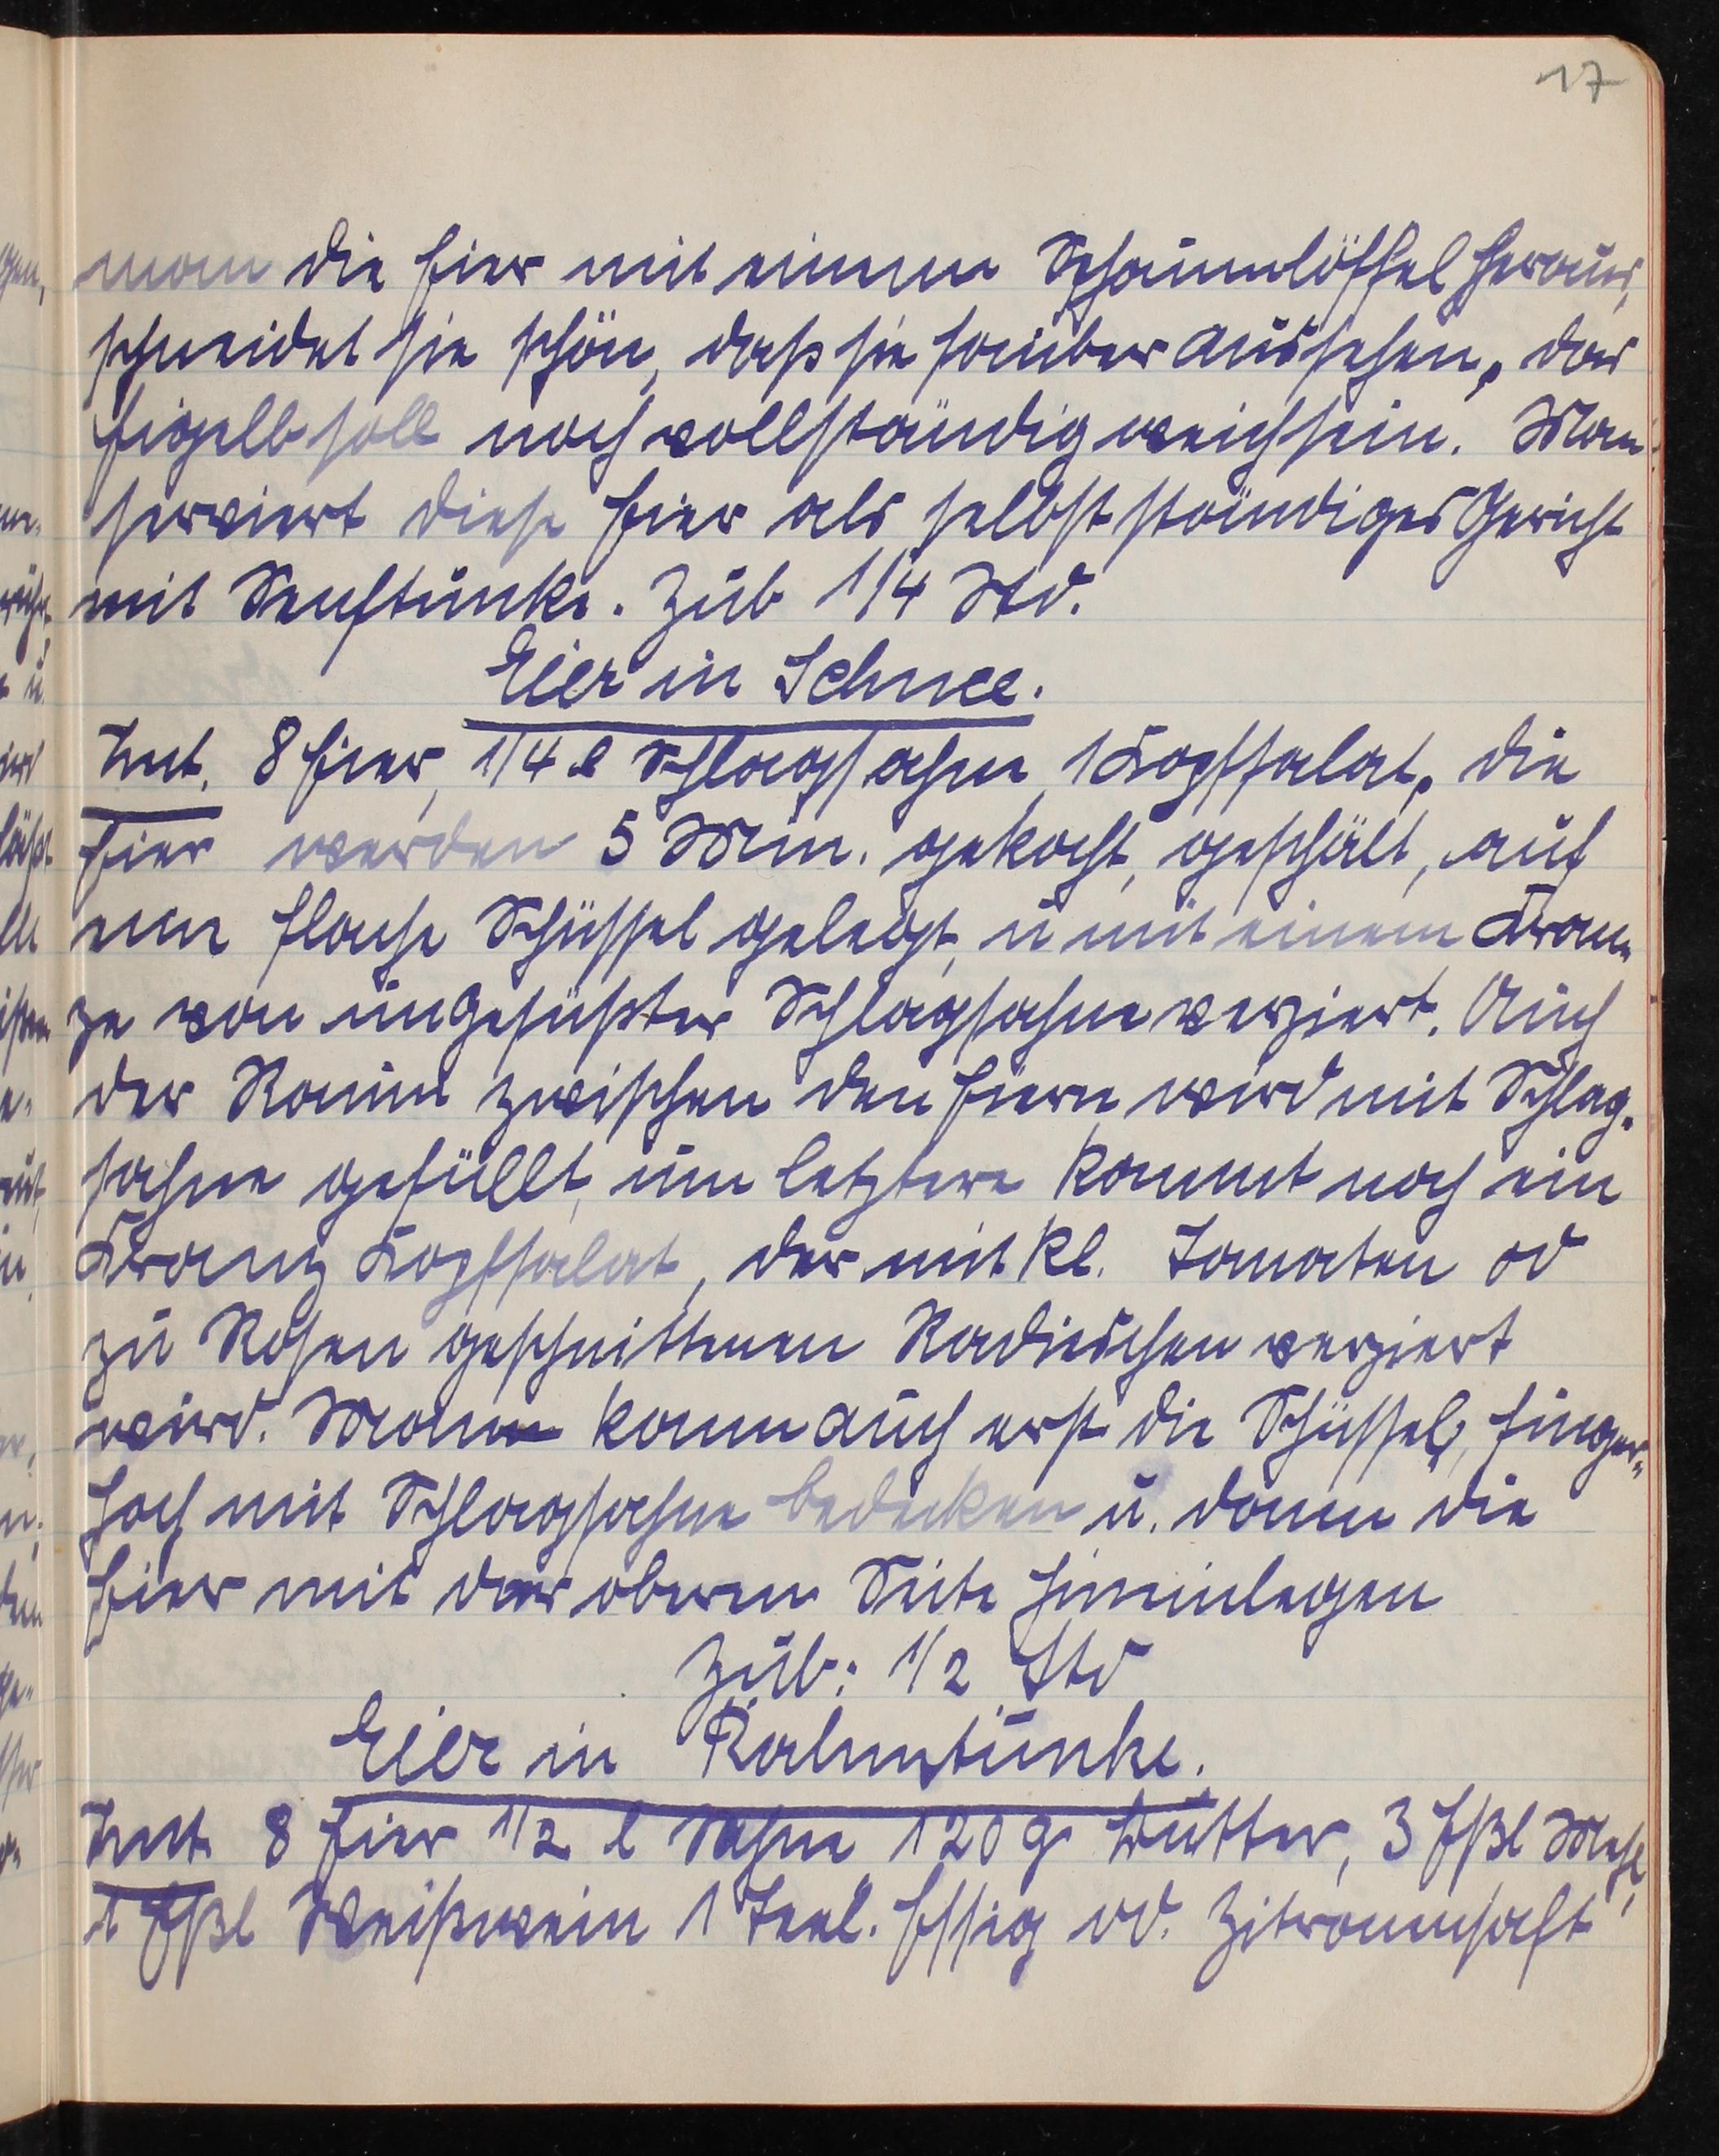 17
man die Eier mit einem Schaumlöffel heraus,
schneidet sie schön, daß sie sauber aussehen, das
Eigelb soll noch vollständig weich sein. Man
serviert diese Eier als selbstständiges Gericht
mit Senftunke. Zub 1/4 Std.
Eier in Schnee.
Zut. 8 Eier, 1/4 l Schlagsahne, 1 Kopfsalat, die
Eier werden 5 Min. gekocht, geschält, auf
eine flache Schüssel gelegt, u mit einem Kran-
ze von ungesüßter Schlagsahne verziert. Auch
der Raum zwischen den Eiern wird mit Schlag-
sahne gefüllt, um letztere kommt noch ein
Kranz Kopfsalat, der mit kl. Tomaten od
zu Rosen geschnittenen Radieschen verziert
wird. Man kann auch erst die Schüssel, finger-
hoch mit Schlagsahne bedecken u. dann die
Eier mit der oberen Seite hineinlegen
Zub: 1/2 Std
Eier in Rahmtunke.
Zut. 8 Eier 1/2 l Sahne 120 g Butter, 3 Eßl Mehl,
1 Eßl Weißwein 1 Teel. Essig od. Zitronensaft